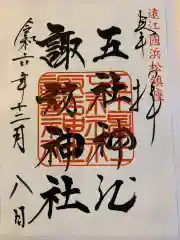 遠江國浜松鎮座
奉拝
五社神社
諏訪神社
令和六年十二月八日